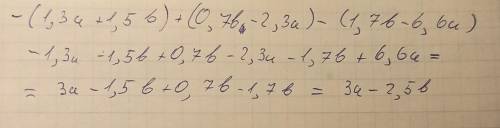 -(1,3a+1,5b)+(0,7b-2,3a)-(1,7b-6,6a)
-1,3a-1,5b+0,7b-2,3a-1,7b+6,6a=
= 3a-1,5b+0,7b-1,7b = 3a-2,5b